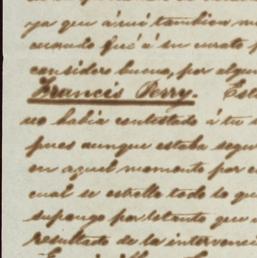 ya que á mi tambien me
cuando fué á su curato p
considero buena, por algun
Francis Perry. Est
no habia contestado á tu
pues aunque estaba segu
en aquel momento por
cual se estrella todo lo qu
supongo por lo tanto que
resultado de la intervenci